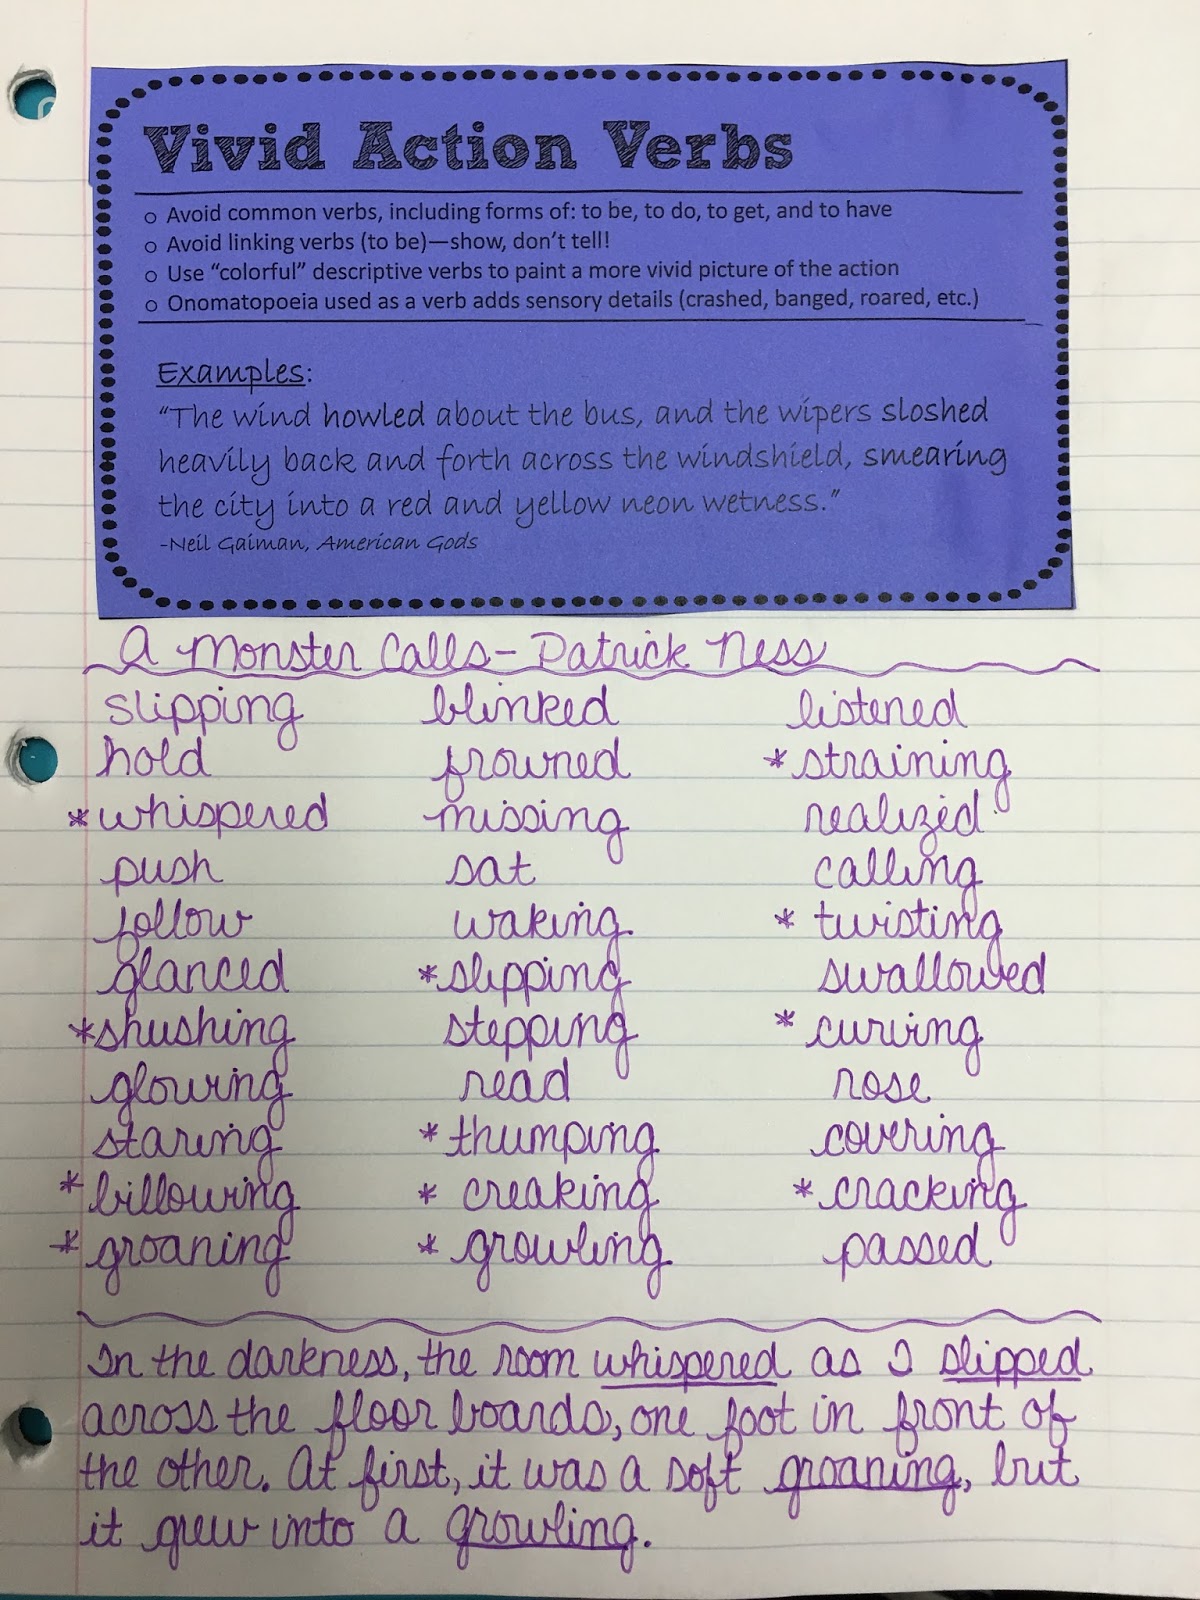 Vivid Action Verbs
o Avoid common verbs, including forms of: to be, to do, to get, and to have
o Avoid linking verbs (to be)—show, don't tell!
o Use "colorful" descriptive verbs to paint a more vivid picture of the action
o Onomatopoeia used as a verb adds sensory details (crashed, banged, roared, etc.)
Examples:
"The wind howled about the bus, and the wipers sloshed
heavily back and forth across the windshield, smearing
the city into a red and yellow neon wetness."
-Neil Gaiman, American Gods
A Monster Calls - Patrick Ness
slipping blinked listened
hold frowned *straining
*whispered missing realized
push sat calling
follow waking *twisting
glanced *slipping swallowed
*shushing stepping *curving
glowing read rose
staring *thumping covering
*billowing *creaking *cracking
*groaning *growling passed
In the darkness, the room whispered as I slipped
across the floor boards, one foot in front of
the other. At first, it was a soft groaning, but
it grew into a growling.